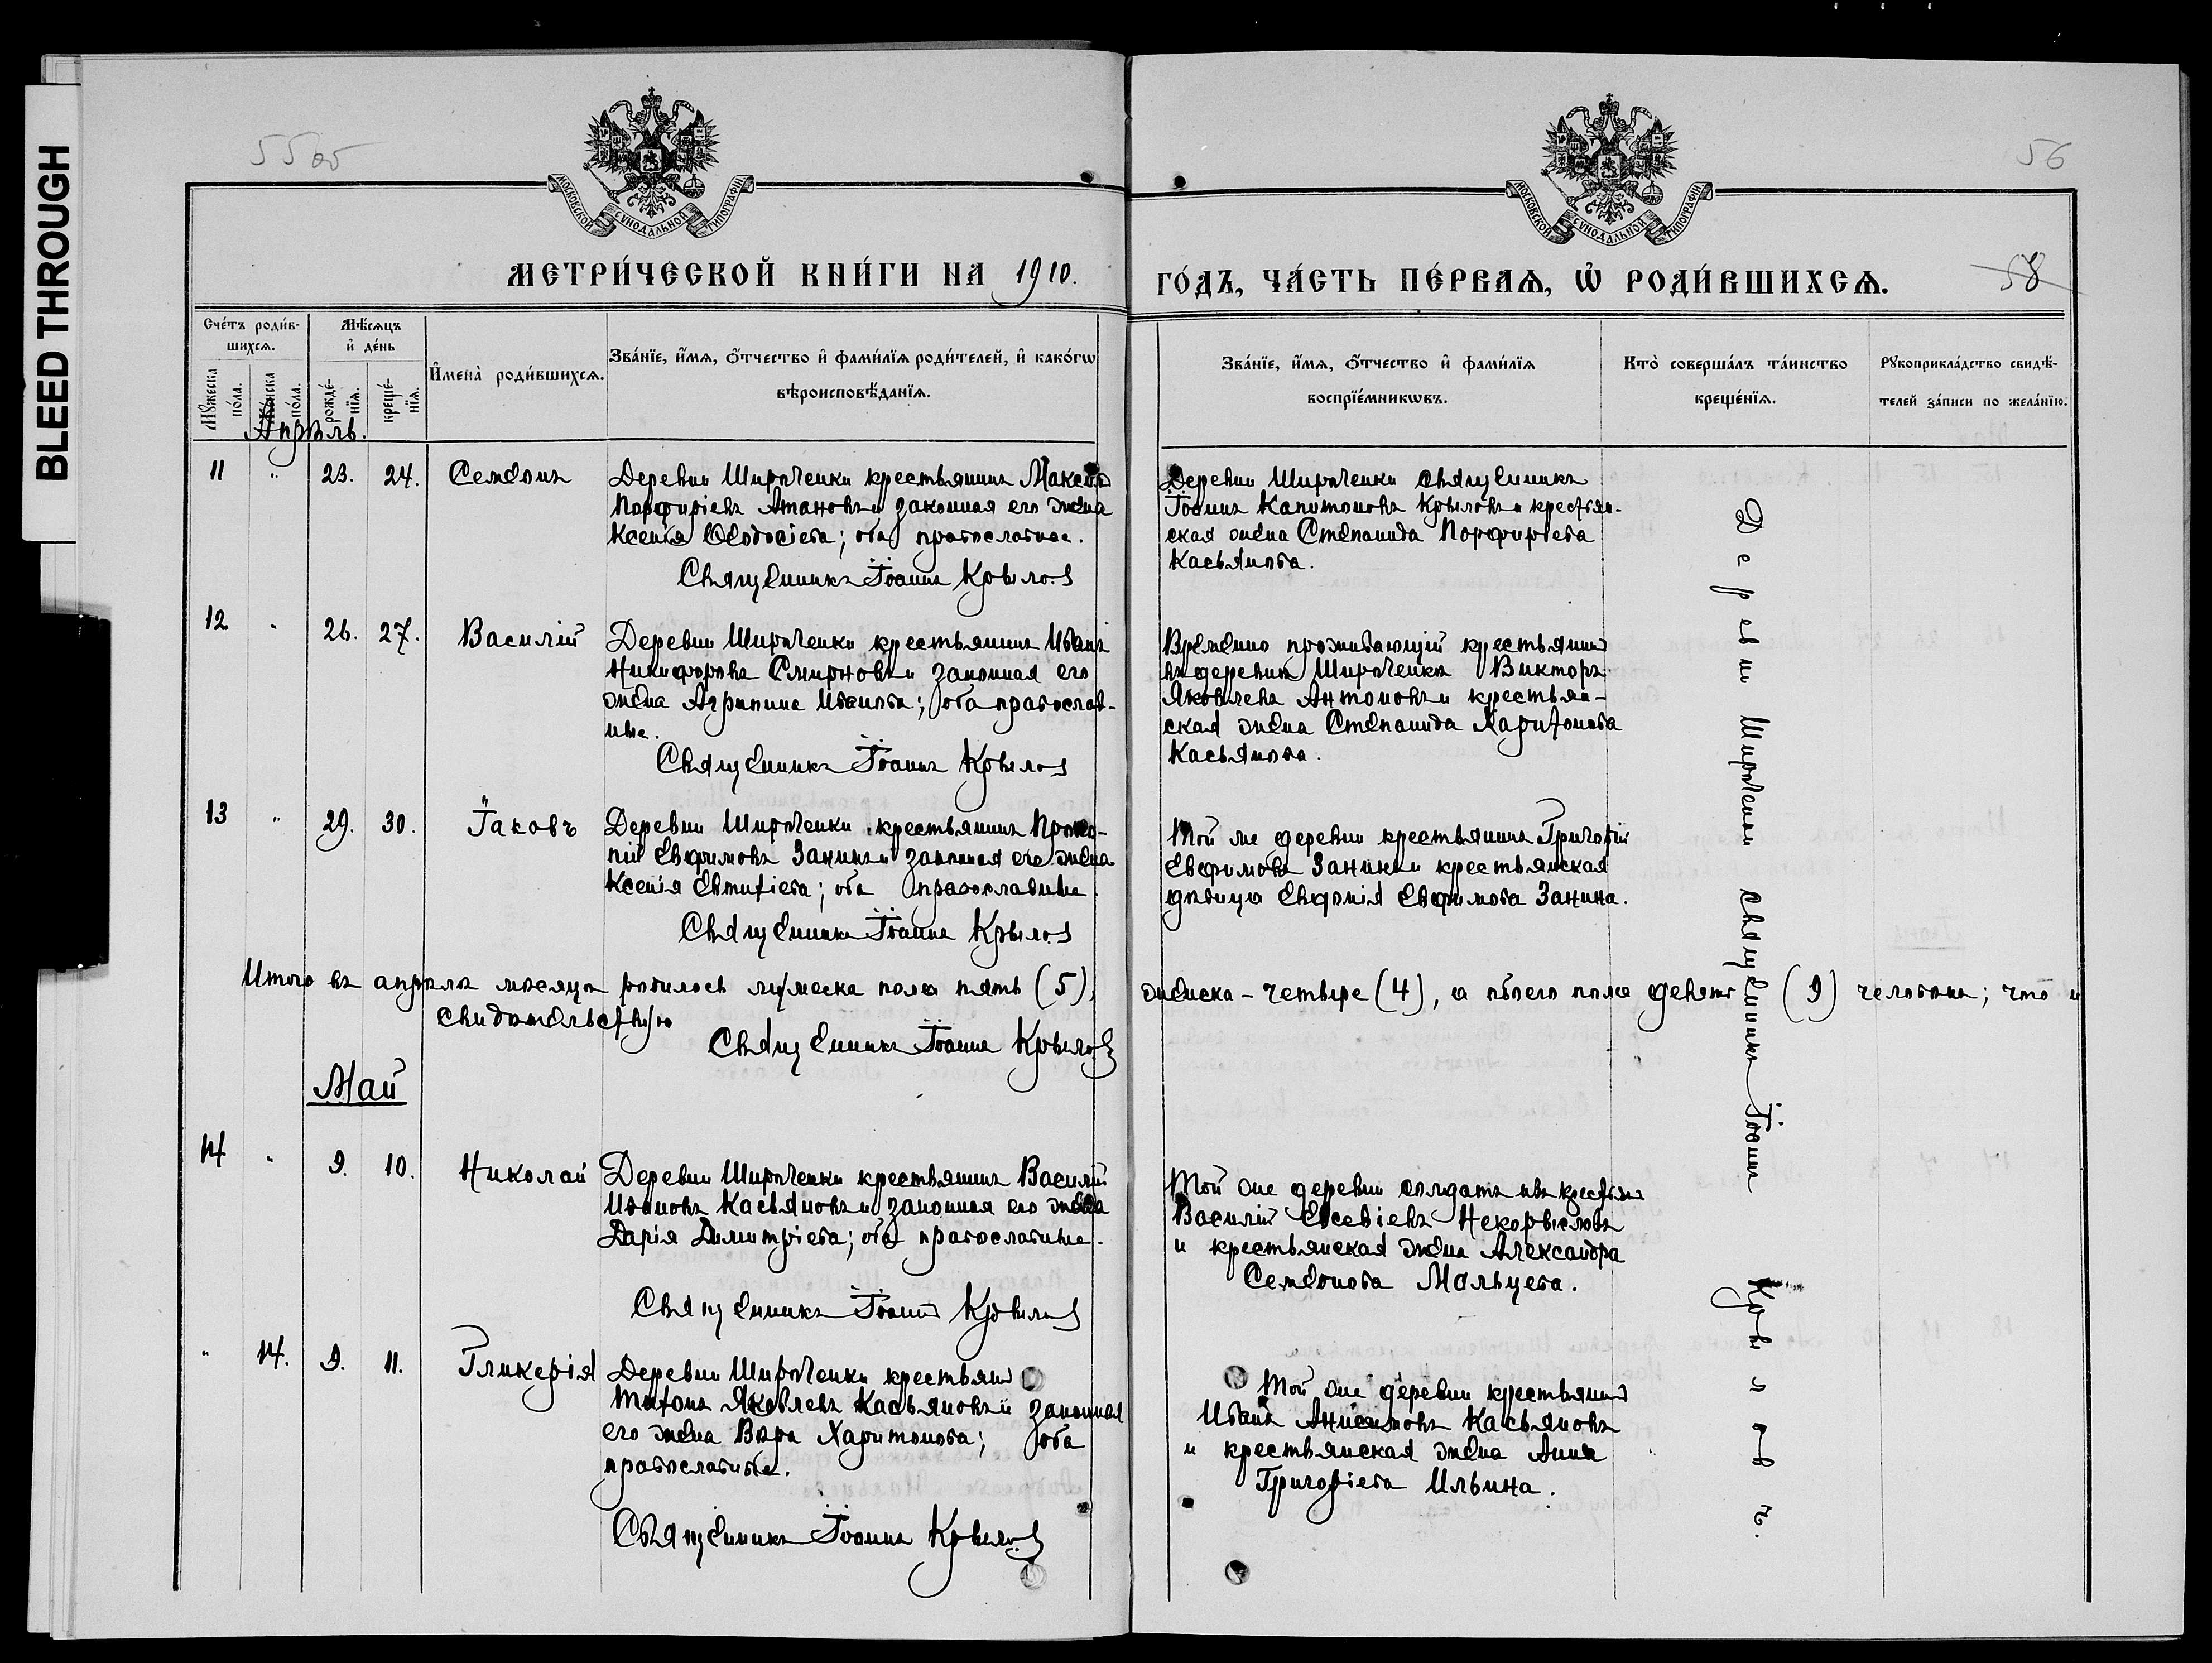 BLEED THROUGH
55об
56
58
МОСКОВСКОЙ СѴНОДАЛЬНОЙ ТИПОГРАФІИ
МОСКОВСКОЙ СѴНОДАЛЬНОЙ ТИПОГРАФІИ
МЕТРИ́ЧЕСКОЙ КНИ́ГИ НА 1910.
ГО́ДЪ, ЧА́СТЬ ПЕ́РВАѦ, Ѡ҆ РОДИ́ВШИХСѦ.
Сче́тъ роди́в-
шихсѧ.
Мꙋжеска по́ла.
Же́нска по́ла.
Мѣ́сѧцъ
и҆ де́нь
рожде́-
нїѧ.
креще́-
нїѧ.
И҆мена̀ роди́вшихсѧ.
Зва́нїе, и҆́мѧ, ѻ҆́тчество и҆ фами́лїѧ роди́телей, и҆ како́гѡ
вѣроисповѣ́данїѧ.
Зва́нїе, и҆́мѧ, ѻ҆́тчество и҆ фами́лїѧ
воспрїе́мникѡвъ.
Кто̀ соверша́лъ та́инство
креще́нїѧ.
Рꙋкоприкла́дство свидѣ́-
телей за́писи по жела́нїю.
Апрѣль.
11 " 23. 24. Симеонъ
Деревни Ширяченки крестьянинъ Максимъ
Порфиріевъ Атановъ и законная его жена
Ксенія Ѳеодосіева; оба православные.
Священникъ Іоаннъ Крыловъ
Деревни Ширяченки священникъ
Іоаннъ Капитоновъ Крыловъ и крестьян-
ская жена Степанида Порфиріева
Касьянова.
12 " 26. 27. Василій
Деревни Ширяченки крестьянинъ Иванъ
Никифоровъ Смирновъ и законная его
жена Агрипина Иванова; оба православ-
ные.
Священникъ Іоаннъ Крыловъ
Временно проживающій крестьянинъ
въ деревнѣ Ширяченкѣ Викторъ
Яковлевъ Антоновъ и крестьян-
ская жена Степанида Харитонова
Касьянова.
13 " 29. 30. Іаковъ
Деревни Ширяченки крестьянинъ Проко-
пій Евфимовъ Занинъ и законная его жена
Ксенія Евтихіева; оба православные.
Священникъ Іоаннъ Крыловъ
Той же деревни крестьянинъ Григорій
Евфимовъ Занинъ и крестьянская
дѣвица Евдокія Евфимова Занина.
Итого въ апрѣлѣ мѣсяцѣ родилось мужеска пола пять (5), женска - четыре (4), а обоего пола девять (9) человѣкъ; что и
свидѣтельствую
Священникъ Іоаннъ Крыловъ
Май
14 " 9. 10. Николай
Деревни Ширяченки крестьянинъ Василій
Ивановъ Касьяновъ и законная его жена
Дарія Димитріева; оба православные.
Священникъ Іоаннъ Крыловъ
Той же деревни солдатъ изъ крестьянъ
Василій Евсевіевъ Некорысловъ
и крестьянская жена Александра
Симеонова Мальцева.
" 14. 9. 11. Гликерія
Деревни Ширяченки крестьянинъ
Тихонъ Яковлевъ Касьяновъ и законная
его жена Вѣра Харитонова; оба
православные.
Священникъ Іоаннъ Крыловъ
Той же деревни крестьянинъ
Иванъ Анисимовъ Касьяновъ
и крестьянская жена Анна
Григоріева Ильина.
Деревни Ширяченки священникъ Іоаннъ Крыловъ.